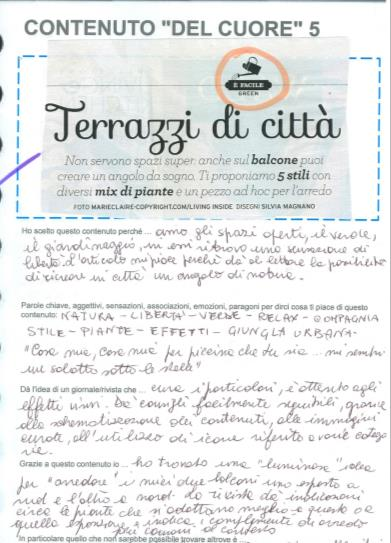 CONTENUTO "DEL CUORE" 5
È FACILE
GREEN
Terrazzi di città
Non servono spazi super: anche sul balcone puoi
creare un angolo da sogno. Ti proponiamo 5 stili con
diversi mix di piante e un pezzo ad hoc per l'arredo
FOTO MARIECLAIRE-COPYRIGHT.COM/LIVING INSIDE DISEGNI SILVIA MAGNANO
Ho scelto questo contenuto perché ... amo gli spazi aperti, il verde,
il giardinaggio, in essi ritrovo una sensazione di
libertà. L'articolo mi piace perché dà al lettore la possibilità
di ricreare in città un angolo di natura.
Parole chiave, aggettivi, sensazioni, associazioni, emozioni, paragoni per dirci cosa ti piace di questo
contenuto: NATURA - LIBERTÀ - VERDE - RELAX - COMPAGNIA
STILE - PIANTE - EFFETTI - GIUNGLA URBANA -
"Casa mia, casa mia per piccina che tu sia ... mi sembri
un salotto sotto le stelle"
Dà l'idea di un giornale/rivista che ... cura i particolari, è attento agli
effetti visivi. Dà consigli facilmente seguibili, grazie
alla schematizzazione dei contenuti, alle immagini
curate, all'utilizzo di icone riferite a varie catego
rie.
Grazie a questo contenuto io ... ho trovato una "luminosa" idea
per "arredare" i miei due balconi uno esposto a
sud e l'altro a nord. La rivista dà indicazioni
circa le piante che si adattano meglio a questa o a
quella esposizione e indica i complementi di arredo
più consoni al contesto
In particolare quello che non sarebbe possibile trovare altrove è